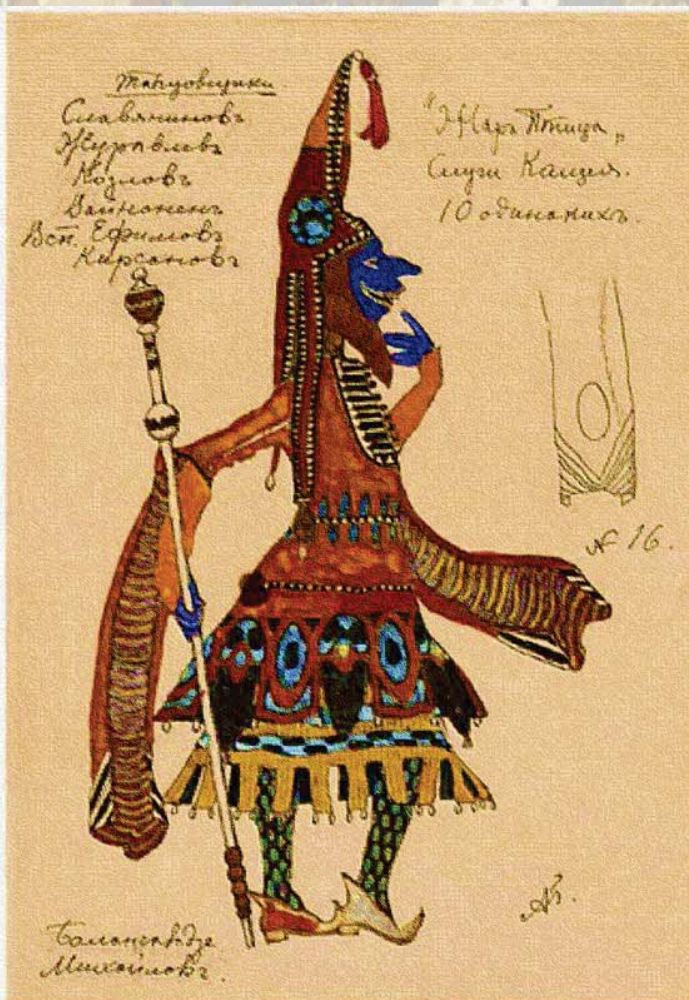 Танцовщики
Славяниновъ
Журавлевъ
Козловъ
Вайноненъ
Всп. Ефимовъ
Кирсановъ
"Жаръ Птица„
Слуги Кащея.
10 одинакихъ.
N 16.
Михайловъ.